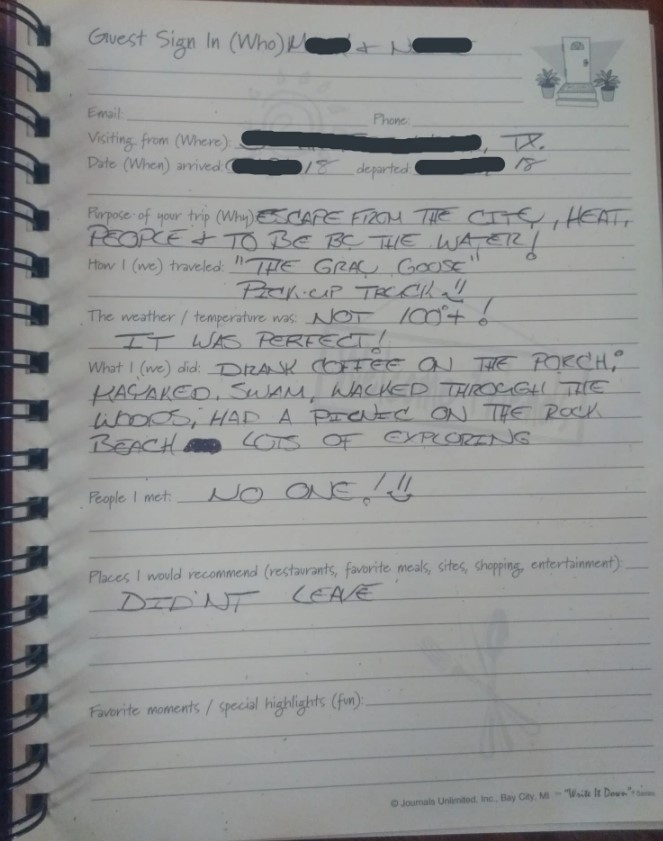 Guest Sign In (Who) M & N
Email: Phone:
Visiting from (Where): , TX.
Date (When) arrived: /18 departed: 18
Purpose of your trip (Why) ESCAPE FROM THE CITY, HEAT,
PEOPLE & TO BE BE THE WATER!
How I (we) traveled: "THE GRAY GOOSE"
PICK-UP TRUCK
The weather / temperature was: NOT 100°+!
IT WAS PERFECT!
What I (we) did: DRANK COFFEE ON THE PORCH,
KAYAKED, SWAM, WALKED THROUGH THE
WOODS, HAD A PICNIC ON THE ROCK
BEACH LOTS OF EXPLORING
People I met: NO ONE!
Places I would recommend (restaurants, favorite meals, sites, shopping, entertainment):
DID'NT LEAVE
Favorite moments / special highlights (fun):
© Journals Unlimited, Inc., Bay City, MI ~ "Write It Down" Series